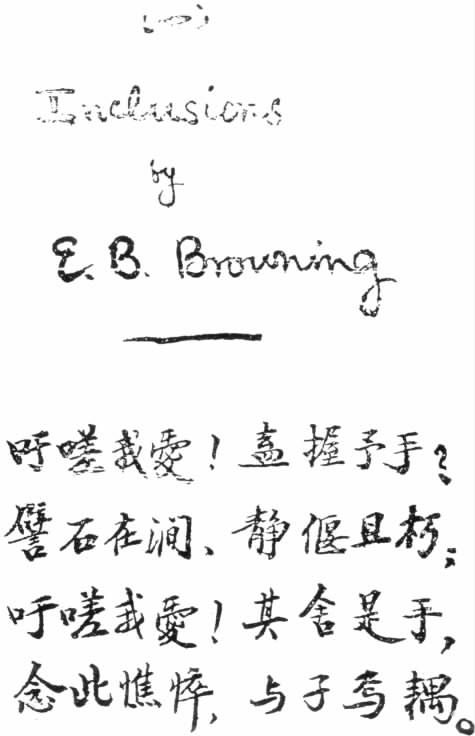 (一)
Inclusions
by
E. B. Browning
吁嗟我愛!盍握予手?
譬石在澗、靜偃且朽;
吁嗟我愛!其舍是手,
念此憔悴,与子焉耦。